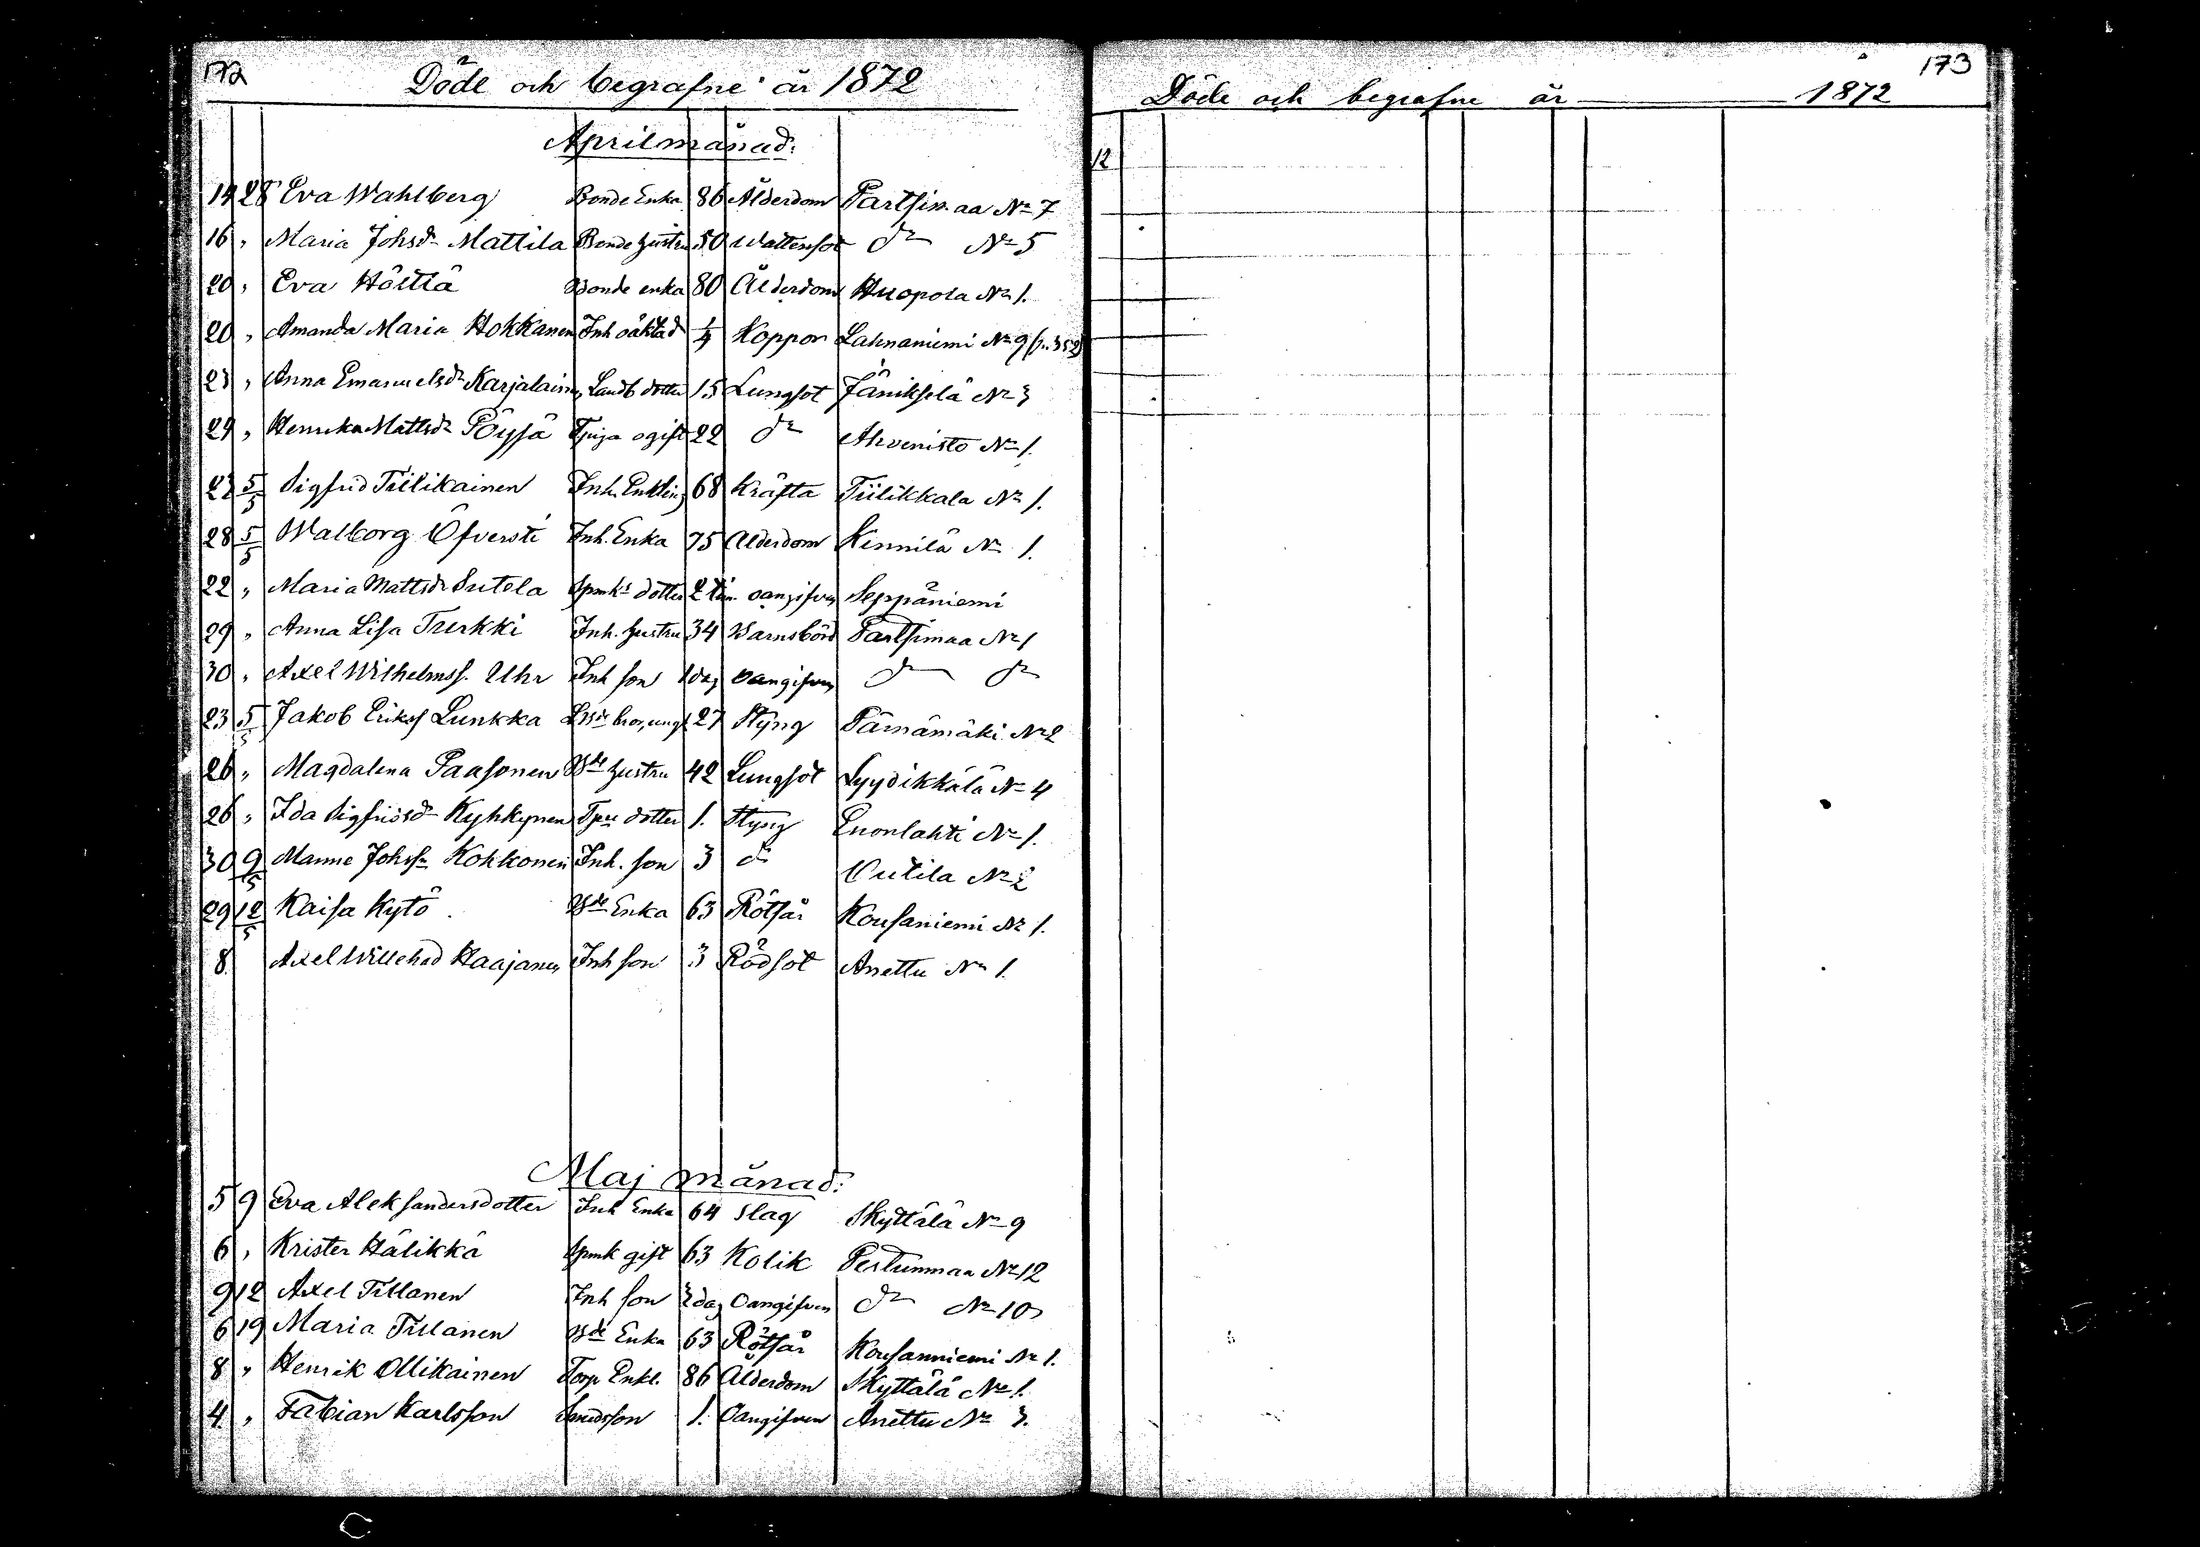 172
Döde och begrafne år 1872
April månad:
14 28 Eva Wahlberg Bonde Enka 86 Ålderdom Partsimaa No 7
16 " Maria Johsdr Mattila Bonde hustru 50 Wattensot do No 5
20 " Eva Hölttä Bonde enka 80 Ålderdom Huopola No 1.
20 " Amanda Maria Hokkanen Inh oäkta d 1/4 Koppor Lahnaniemi No 9
23 " Anna Emanuelsdr Karjalainen Landb dotter 15 Lungsot Jänikselä No 3
29 " Henrika Mattsdr Pöysä Tjpiga ogift 22 do Ahvenisto No 1.
27 5/5 Sigfrid Tiilikainen Inh. Enkling 68 Kräfta Tiilikkala No 1.
28 5/5 Walborg Öfversti Inh. Enka 75 Ålderdom Kinnilä No 1.
22 " Maria Mattsdr Sutela Spmks dotter 2 tim. oangifven Seppäniemi
29 " Anna Lisa Turkki Inh. hustru 34 Barnsbörd Partsimaa No 1
30 " Axel Wilhelmss. Uhr Inh son 1 dag oangifven do do
23 5/5 Jakob Erikss Lunkka bror, ung 27 Styng Pärnämäki No 2
26 " Magdalena Paasonen Bde hustru 42 Lungsot Lyydikkälä No 4
26 " Ida Sigfridsdr Kyhkynen dotter 1. Styng Enonlahti No 1.
30 9/5 Manne Johssn Kokkonen Inh. son 3 do Outila No 2
29 12/5 Kaisa Kytö Bde Enka 63 Rötsår Kousaniemi No 1.
8 Axel Willehad Haajanen Inh son 3 Rödsot Anettu No 1.
Maj månad:
5 9 Eva Aleksandersdotter Inh Enka 64 Slag Skyttälä No 9
6 " Krister Hälikkä Spmk gift 63 Kolik Pertunmaa No 12
9 12 Axel Tillanen Inh son dag Oangifven do No 10
6 19 Maria Tillanen Bde Enka 63 Rötsår Kousanniemi No 1.
8 " Henrik Ollikainen Torp Enkl. 86 Ålderdom Skyttälä No 1.
4 " Fabian Karlsson Smedsson 1. Oangifven Anettu No 3.
173
Döde och begrafne år 1872
12